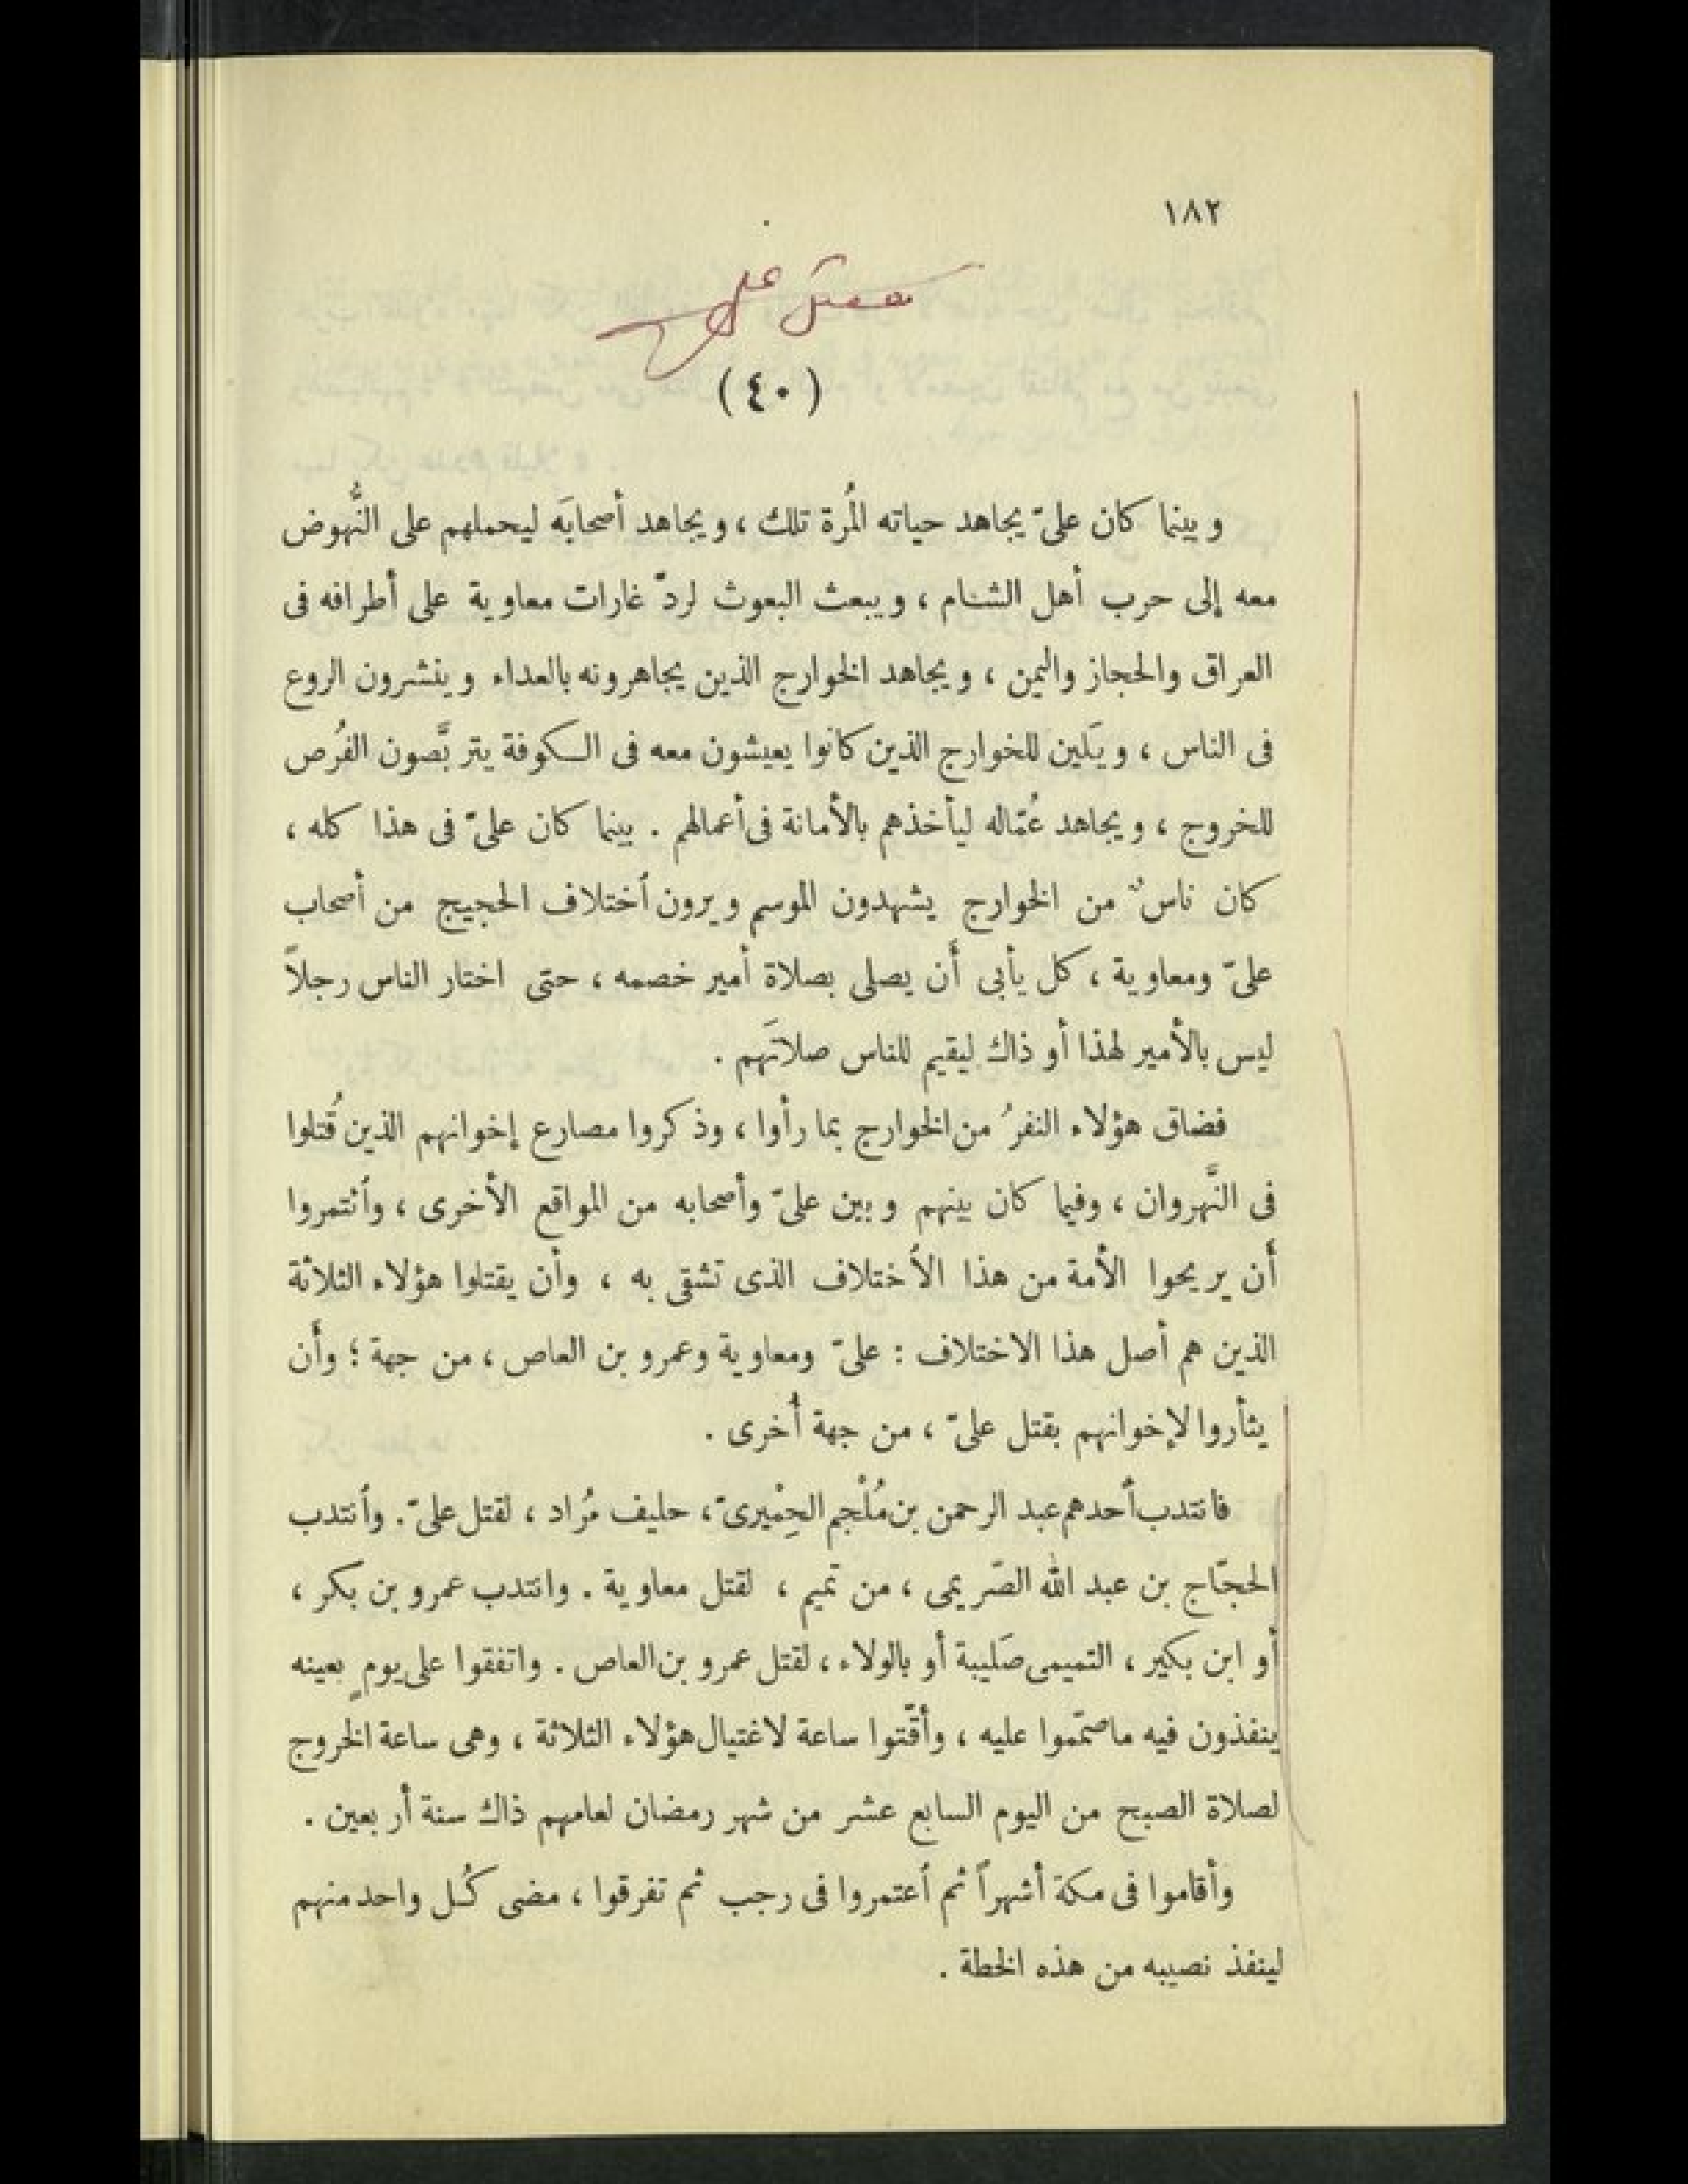 ١٨٢
مقتل علي
(٤٠)
وبينما كان علىّ يجاهد حياته المُرة تلك ، ويجاهد أصحابَه ليحملهم على النُّهوض
معه إلى حرب أهل الشام ، ويبعث البعوث لردّ غارات معاوية على أطرافه فى
العراق والحجاز واليمن ، ويجاهد الخوارج الذين يجاهرونه بالعداء وينشرون الروع
فى الناس ، ويَلين للخوارج الذين كانوا يعيشون معه فى الكوفة يتربَّصون الفُرص
للخروج ، ويجاهد عُمّاله ليأخذهم بالأمانة فى أعمالهم . بينما كان علىّ فى هذا كله ،
كان ناسٌ من الخوارج يشهدون الموسم ويرون ٱختلاف الحجيج من أصحاب
علىّ ومعاوية ، كل يأبى أَن يصلى بصلاة أمير خصمه ، حتى اختار الناس رجلاً
ليس بالأمير لهذا أو ذاك ليقيم للناس صلاتَهم .
فضاق هؤلاء النفرُ من الخوارج بما رأوا ، وذكروا مصارع إخوانهم الذين قُتلوا
فى النَّهروان ، وفيما كان بينهم وبين علىّ وأصحابه من المواقع الأخرى ، وٱئتمروا
أَن يريحوا الأمة من هذا الٱختلاف الذى تشقى به ، وأن يقتلوا هؤلاء الثلاثة
الذين هم أصل هذا الاختلاف : علىّ ومعاوية وعمرو بن العاص ، من جهة ؛ وأَن
يثأروا لإخوانهم بقتل علىّ ، من جهة أُخرى .
فانتدب أحدهم عبد الرحمن بن مُلْجم الحِمْيرىّ ، حليف مُراد ، لقتل علىّ . وٱنتدب
الحجّاج بن عبد الله الصّريمى ، من تميم ، لقتل معاوية . وانتدب عمرو بن بكر ،
أو ابن بكير ، التميمى صَليبة أو بالولاء ، لقتل عمرو بن العاص . واتفقوا على يومٍ بعينه
ينفذون فيه ما صمّموا عليه ، وأقّتوا ساعة لاغتيال هؤلاء الثلاثة ، وهى ساعة الخروج
لصلاة الصبح من اليوم السابع عشر من شهر رمضان لعامهم ذاك سنة أربعين .
وأقاموا فى مكة أشهراً ثم ٱعتمروا فى رجب ثم تفرقوا ، مضى كُل واحد منهم
لينفذ نصيبه من هذه الخطة .